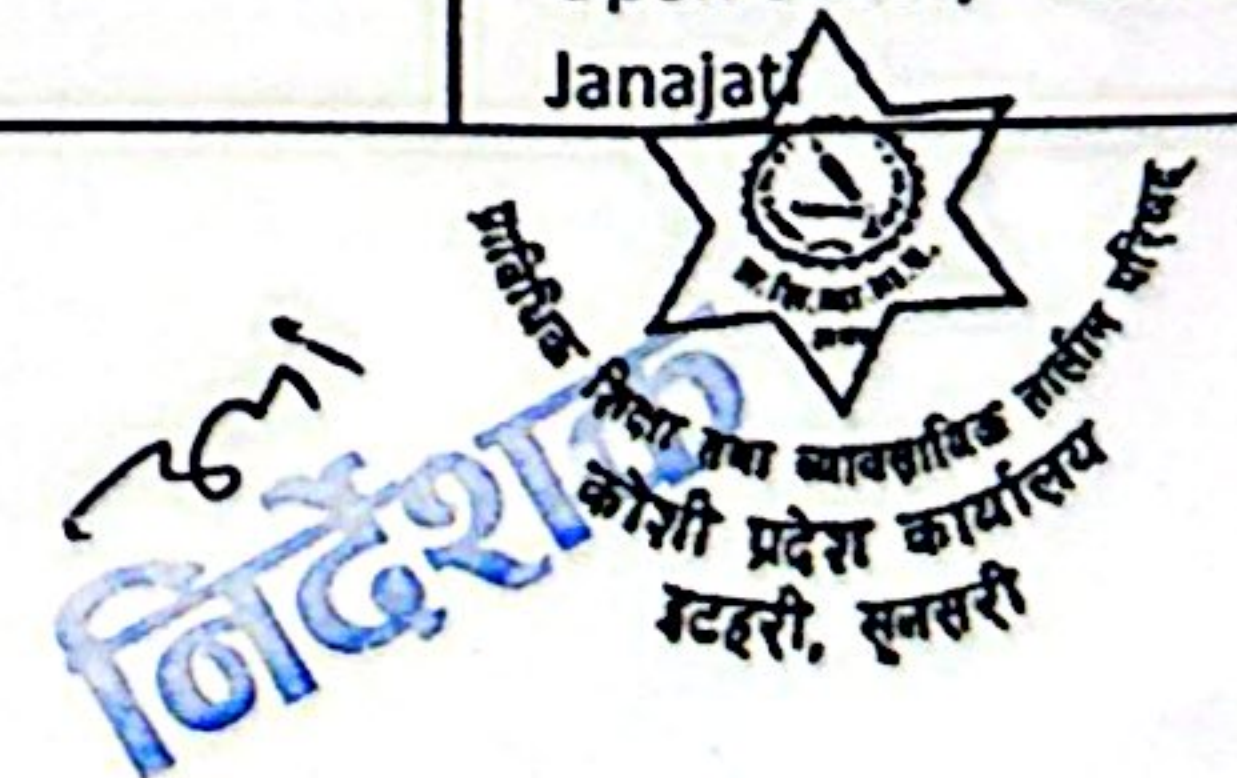 Janajati
प्राविधिक शिक्षा तथा व्यावसायिक तालीम परिषद्
कोशी प्रदेश कार्यालय
इटहरी, सुनसरी
निर्देशक